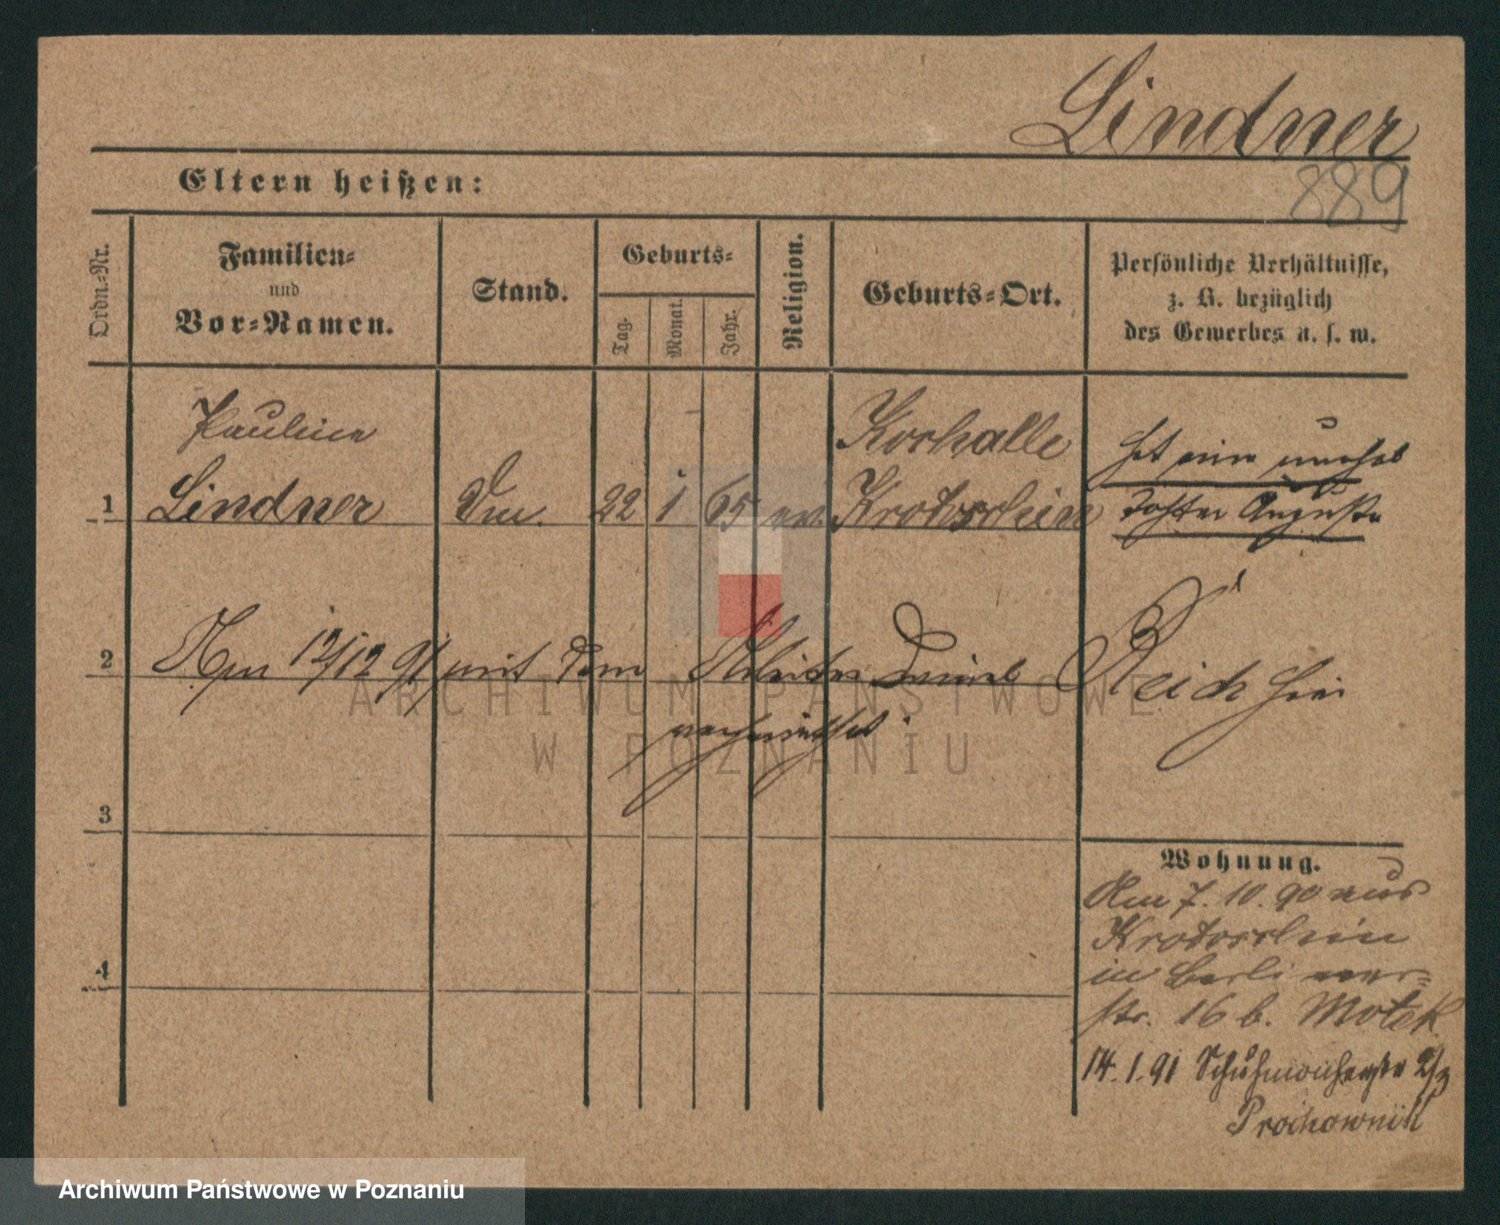 Lindner
889
Eltern heißen:
Ordn.-Nr.
Familien-
und
Vor-Namen.
Stand.
Geburts-
Tag.
Monat.
Jahr.
Religion.
Geburts-Ort.
Persönliche Verhältnisse,
z. B. bezüglich
des Gewerbes u. s. w.
Pauline
Lindner
22 1 65 ev.
Koshalle
Krotoschin
hat eine unehel
Tochter Auguste
1
2
Am 12/12 91 mit dem Arbeiter Reich hier
verheirathet.
3
4
Wohnung.
Am 7. 10. 90 aus
Krotoschin
in Berli
str. 16 b. Motek
14. 1. 91 Schuhmacherstr
Prochownik
ARCHIWUM PAŃSTWOWE
W POZNANIU
Archiwum Państwowe w Poznaniu